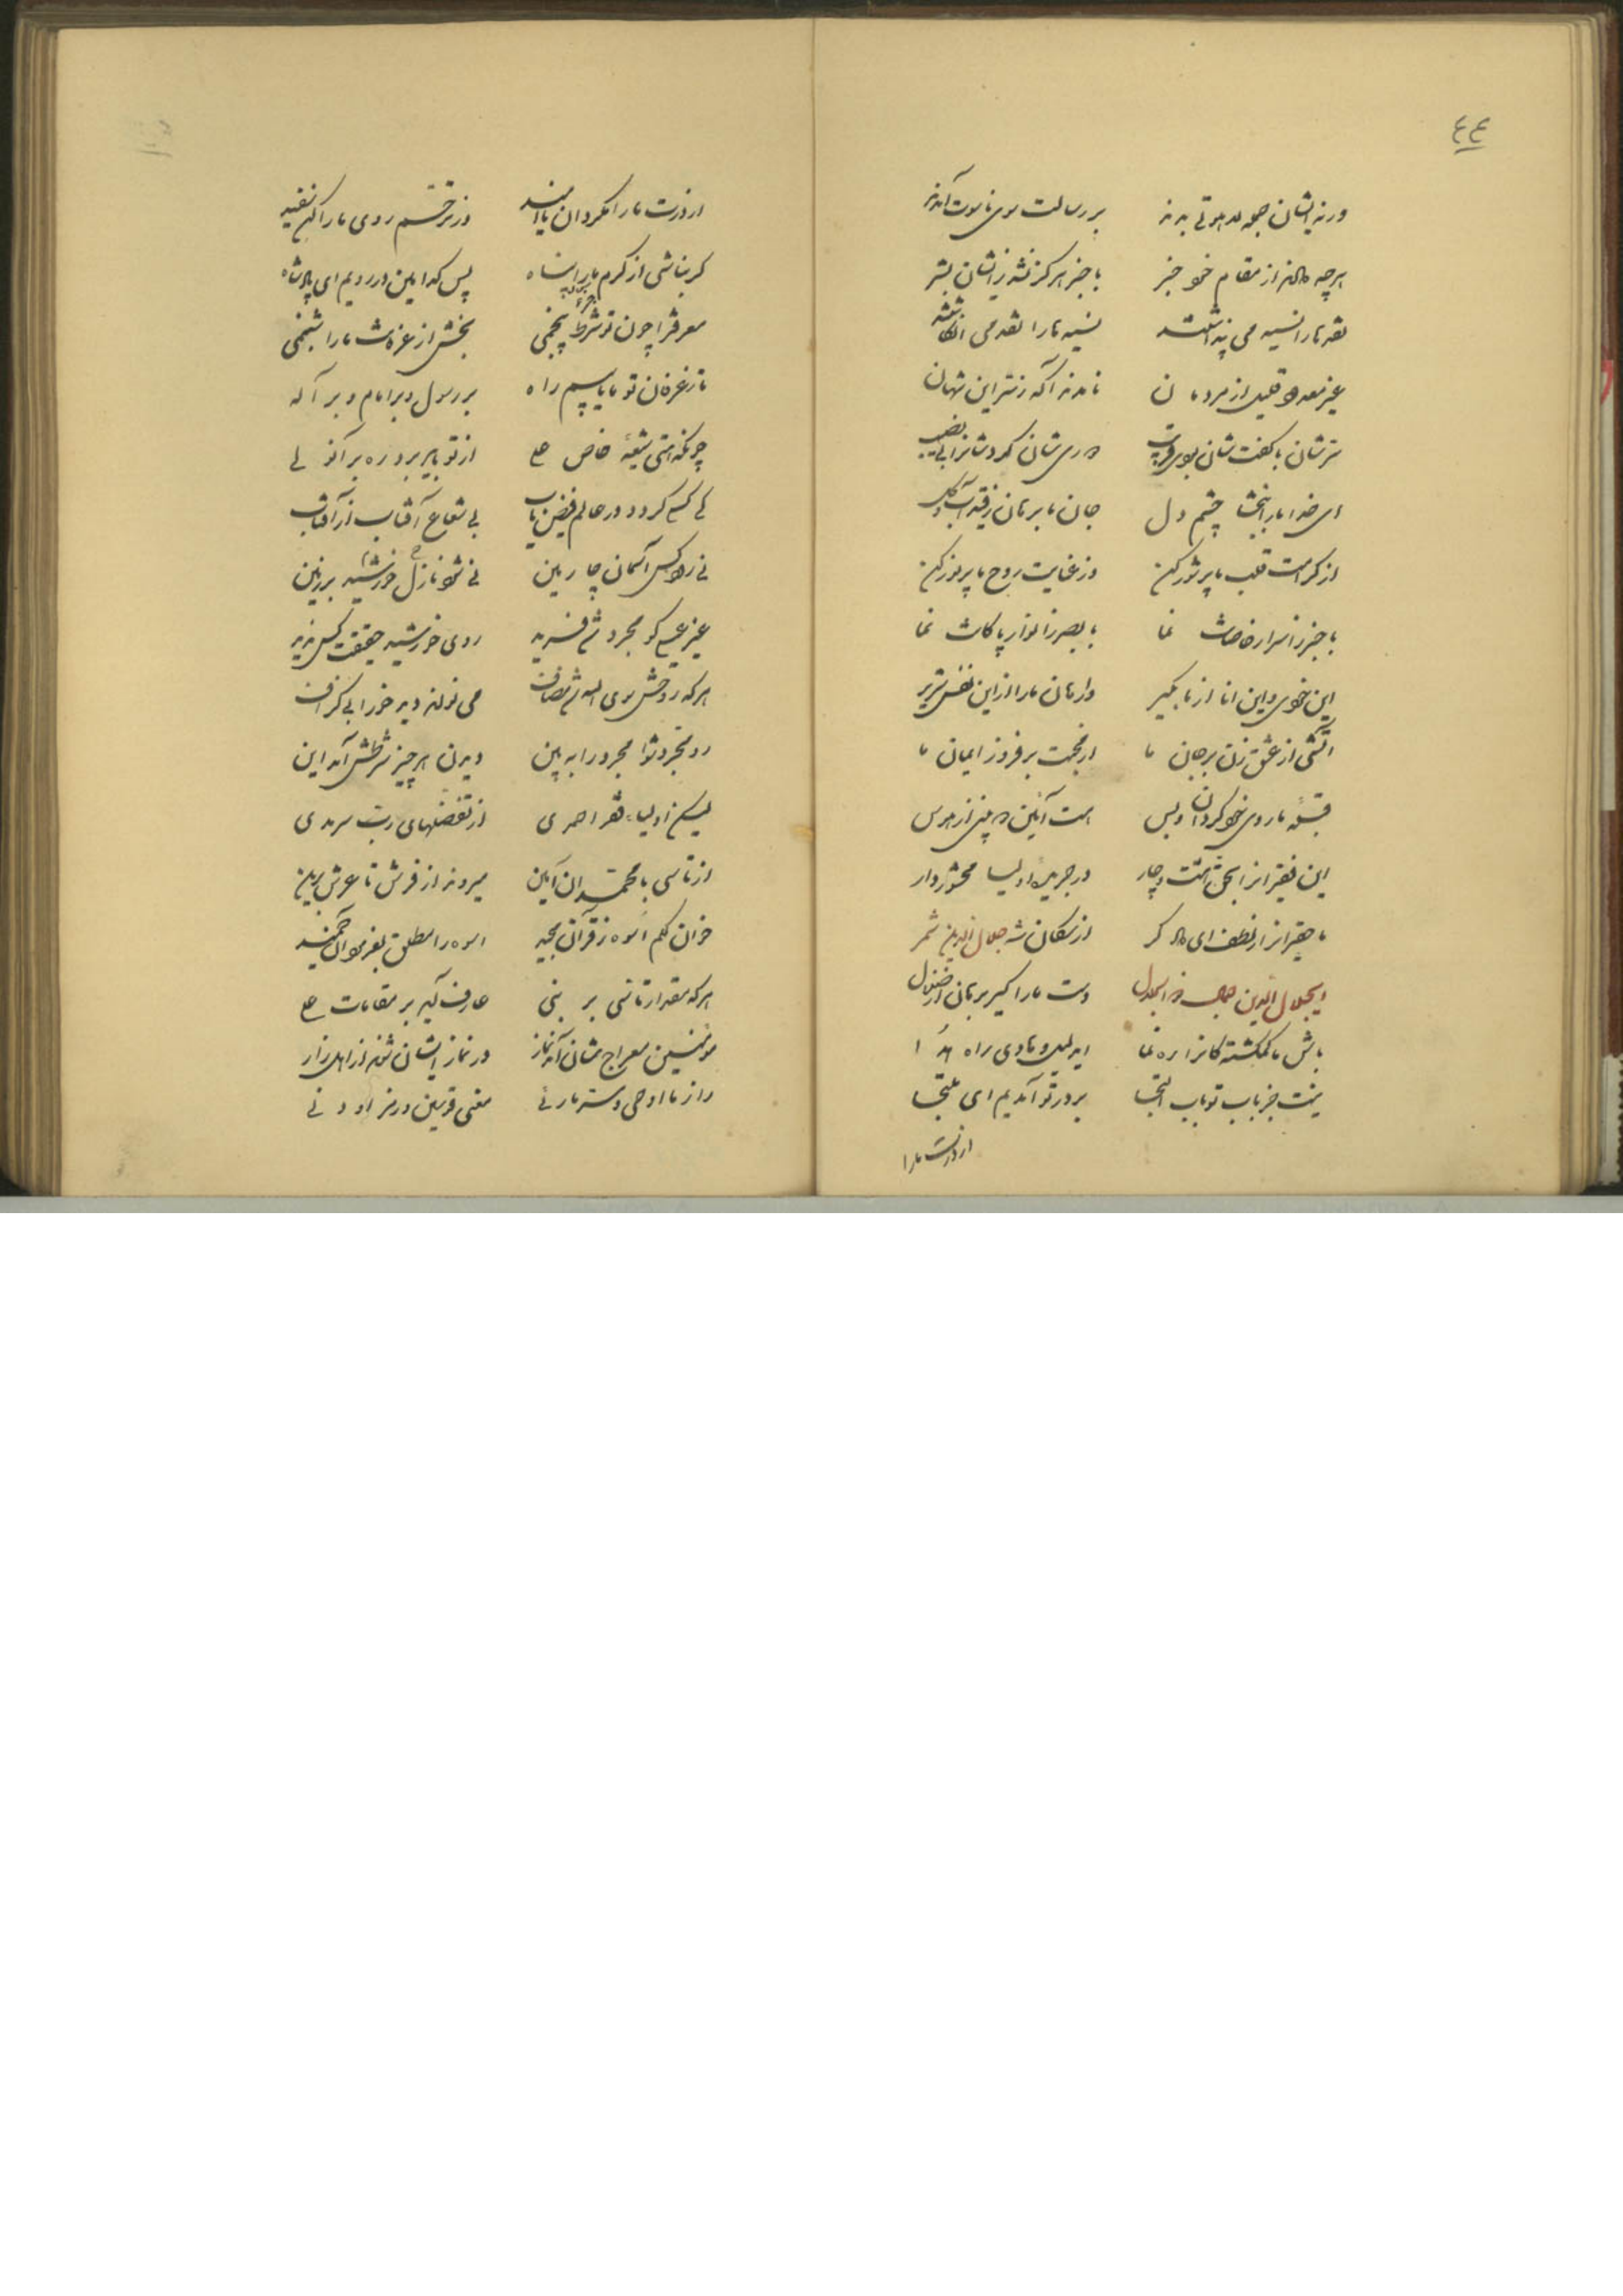 ٤٤
ورنه ایشان جمله لاهوتی بدند بر رسالت سوی ناسوت آمدند
هرچه دادند از مقام خود خبر با خبر هرگز نشد زایشان بشر
نقدها را نسیه می پنداشتند نسیه ها را نقد می انگاشتند
غیر معدود قلیل از مردمان نامدند آگه ز سر این شهان
سرشان با گفت شان بودی قریب
ای خدا ما را ببخشا چشم دل جان ما برهان ز قید آب و گل
از کرامت قلب ما پر شور کن وز عنایت روح ما پر نور کن
با خبر ز اسرار خاصات نما با بصر ز انوار پاکات نما
این خودی و این انا از ما بگیر وارهان ما را از این نفس شریر
آتشی از عشق زن بر جان ما از محبت برفروز ایمان ما
قبله ما روی خود گردان و بس
این فقیران را بحق هشت و چار در جریده اولیا محشور دار
ما حقیران را ز لطف ای دادگر از سگان شه جلال الدین شمر
دست ما را گیر برهان از ضلال
باش ما گمگشتگان را ره نما ای دلیل و هادی راه هدا
نیست جز باب تو باب التجا بر در تو آمدیم ای ملتجا
از درت ما را
از درت ما را مگردان ناامید وز ترحم روی ما را کن سفید
گر نباشی از کرم ما را پناه پس کدامین در رویم ای پادشاه
معرفت را چون تو شرط پنجمی بخش از عرفانت ما را شبنمی
تا ز عرفان تو ما یابیم راه بر رسول و بر امام و بر اله
چونکه هستی شیعه خاص علی از تو باید برد ره بر آن ولی
کی کسی گردد در عالم فیض یاب بی شعاع آفتاب از آفتاب
نی رود کس آسمان چارمین نی شود نازل خورشید بر زمین
غیر عیسی کو مجرد شد فرید روی خورشید حقیقت کس ندید
هرکه روحش سوی الله شد مضاف می تواند دید خور را بی گزاف
رو مجرد شو مجرد را ببین دیدن هر چیز شرطش آمد این
لیکن اولیاء فقر احمدی از تفضلهای رب سرمدی
از تاسی با محمد ان آیین میروند از فرش تا عرش برین
خوان لکم اسوه ز قرآن مجید اسوه را مطلق بفرمود آن حمید
هرکه مقدار تاسی بر نبی عارف آید بر مقامات علی
مؤمنین معراجشان آمد نماز در نماز ایشان شدند از اهل راز
راز ما اوحی و سر مارنی معنی قوسین و رمز او دنی